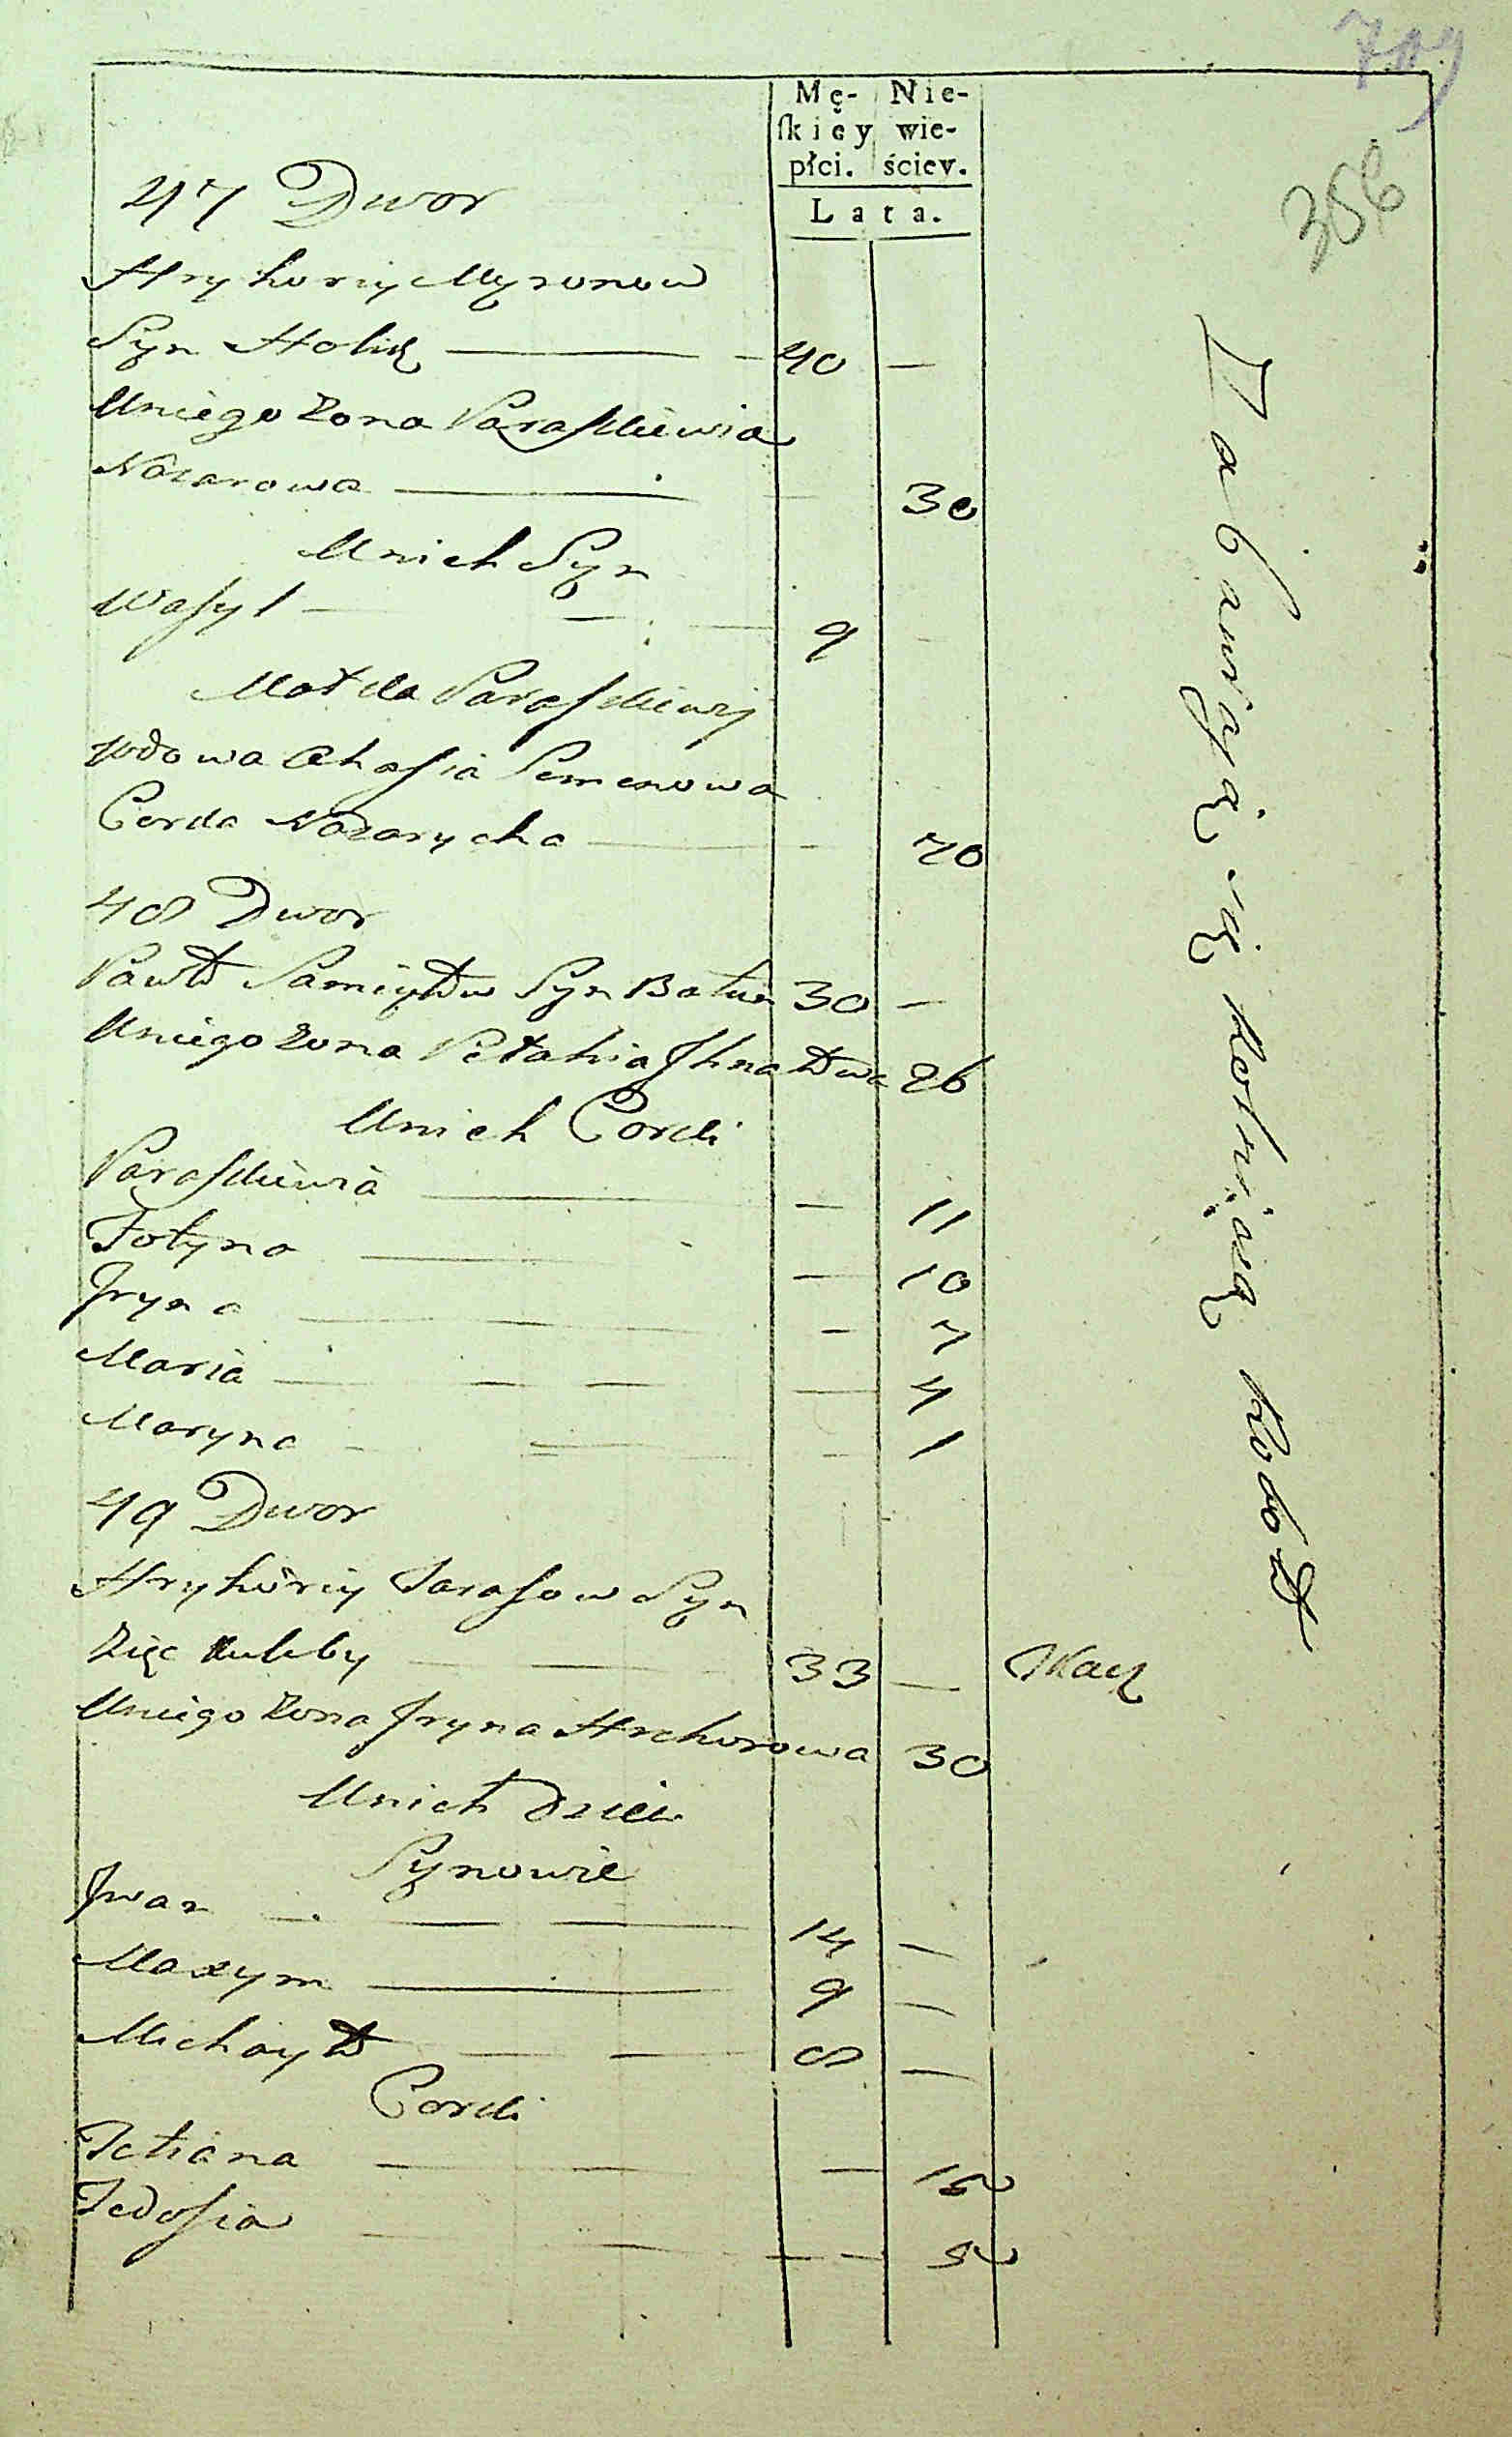 356
Mę- Nie-
skiey wie-
płci. ściey.
Lata.
47 Dwor
Hryhoriy Myronow
Syn Holik 40 —
Uniego Zona Paraskiewia
Nazarowa — 30
Unich Syn
Wasyl 9 —
Matka Paraskiewij
wdowa Chasia Semenowa
Corka Nazarycha — 70
48 Dwor
Pawło Samiyłow Syn 30 —
Uniego Zona Pełahia Jhnatowa 26
Unich Corki
Paraskiewia — 11
Fotyna — 10
Jryna — 7
Maria — 4
Maryna — 1
49 Dwor
Hryhoriy Tarasow Syn
Zięc Kuleby 33 — Tkacz
Uniego Zona Jryna Hrehorowa 30
Unich Dzieci
Synowie
Jwan 14 —
Maxym 9 —
Michayło 8 —
Corki
Tetiana — 12
Fedosia — 2
Zabawiaią się robotą koło